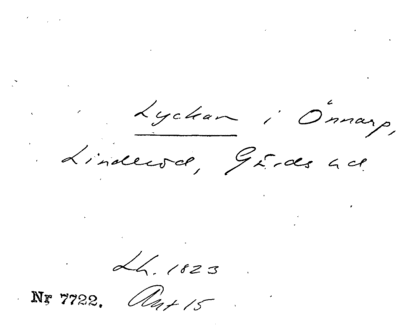 Lyckan i Önnarp,
Linderöd, Gärds hd
Lh. 1823
Nr 7722. Akt 15